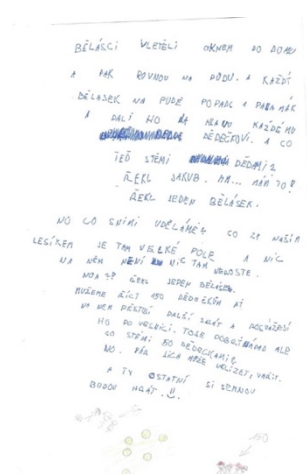 BĚLÁSCI VLETĚLI OKNEM DO DOMU
A PAK ROVNOU NA PŮDU. A KAŽDÝ
BĚLÁSEK NA PŮDĚ POPADL
A DALI HO NA HLAVU KAŽDÉMU
DĚDEČKOVI. A CO
TEĎ STĚMI DĚDAMI?
ŘEKL JAKUB. HM... MÁM TO!
ŘEKL JEDEN BĚLÁSEK.
NO CO SNIMI UDĚLÁME? CO ZA NAŠIM
LESÍKEM JE TAM VELKÉ POLE A NIC
NA NĚM NENÍ NIC TAM NEROSTE.
NO A?? ŘEKL JEDEN BĚLÁSEK.
MUŽEME ŘÍCT 150 DĚDEČKŮM AŤ
NA NĚM PĚSTUJÍ DALŠÍ
HO DO VESNICE. TOSE DOBŘE ALE
CO STĚMI 150 DĚDEČKAMI?
NO. PÁR
A TY OSTATNÍ SI SEDNOU
BUDOU HRÁT.